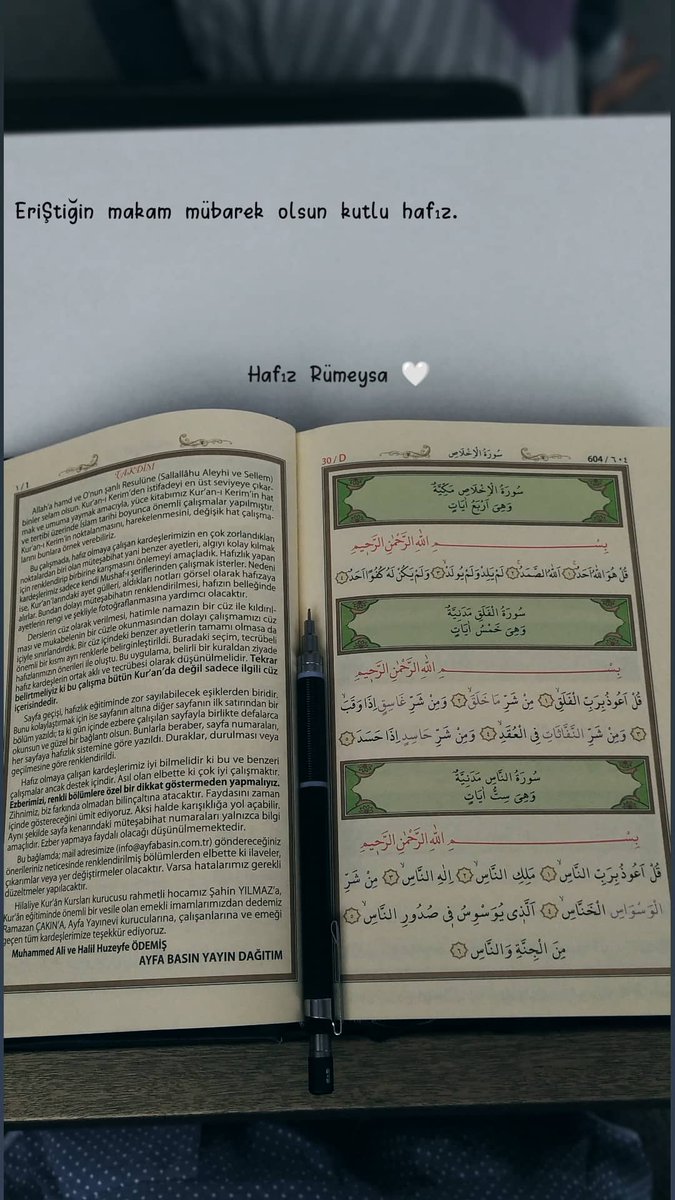 EriŞtiğin makam mübarek olsun kutlu hafız.
Hafız Rümeysa 🤍
١ / 1
TAKDİM
Allah'a hamd ve O'nun şanlı Resulüne (Sallallâhu Aleyhi ve Sellem)
binler selam olsun. Kur'an-ı Kerim'den istifadeyi en üst seviyeye çıkar-
mak ve umuma yaymak amacıyla, yüce kitabımız Kur'an-ı Kerim'in hat
ve tertibi üzerinde İslam tarihi boyunca önemli çalışmalar yapılmıştır.
Kur'an-ı Kerim'in noktalanması, harekelenmesi, değişik hat çalışma-
larını bunlara örnek verebiliriz.
Bu çalışmada, hafız olmaya çalışan kardeşlerimizin en çok zorlandıkları
noktalardan biri olan müteşabihat yani benzer ayetleri, algıyı kolay kılmak
için renklendirip birbirine karışmasını önlemeyi amaçladık. Hafızlık yapan
kardeşlerimiz sadece kendi Mushaf-ı şeriflerinden çalışmak isterler. Nedeni
ise, Kur'an'larındaki ayet gülleri, aldıkları notları görsel olarak hafızaya
alırlar. Bundan dolayı müteşabihatın renklendirilmesi, hafızın belleğinde
ayetlerin rengi ve şekliyle fotoğraflanmasına yardımcı olacaktır.
Derslerin cüz olarak verilmesi, hatimle namazın bir cüz ile kıldırıl-
ması ve mukabelenin bir cüzle okunmasından dolayı çalışmamızı cüz
içiyle sınırlandırdık. Bir cüz içindeki benzer ayetlerin tamamı olmasa da
önemli bir kısmı ayrı renklerle belirginleştirildi. Buradaki seçim, tecrübeli
hafızlarımızın önerileri ile oluştu. Bu uygulama, belirli bir kuraldan ziyade
hafız kardeşlerin ortak aklı ve tecrübesi olarak düşünülmelidir. Tekrar
belirtmeliyiz ki bu çalışma bütün Kur'an'da değil sadece ilgili cüz
içerisindedir.
Sayfa geçişi, hafızlık eğitiminde zor sayılabilecek eşiklerden biridir.
Bunu kolaylaştırmak için ise sayfanın altına diğer sayfanın ilk satırından bir
bölüm yazıldı; ta ki gün içinde ezbere çalışılan sayfayla birlikte defalarca
okunsun ve güzel bir bağlantı olsun. Bunlarla beraber, sayfa numaraları,
her sayfaya hafızlık sistemine göre yazıldı. Duraklar, durulması veya
geçilmesine göre renklendirildi.
Hafız olmaya çalışan kardeşlerimiz iyi bilmelidir ki bu ve benzeri
çalışmalar ancak destek içindir. Asıl olan elbette ki çok iyi çalışmaktır.
Ezberimizi, renkli bölümlere özel bir dikkat göstermeden yapmalıyız.
Zihnimiz, biz farkında olmadan bilinçaltına atacaktır. Faydasını zaman
içinde göstereceğini ümit ediyoruz. Aksi halde karışıklığa yol açabilir.
Aynı şekilde sayfa kenarındaki müteşabihat numaraları yalnızca bilgi
amaçlıdır. Ezber yapmaya faydalı olacağı düşünülmemektedir.
Bu bağlamda; mail adresimize (info@ayfabasin.com.tr) göndereceğiniz
önerileriniz neticesinde renklendirilmiş bölümlerden elbette ki ilaveler,
çıkarımlar veya yer değiştirmeler olacaktır. Varsa hatalarımız gerekli
düzeltmeler yapılacaktır.
Hilaliye Kur'ân Kursları kurucusu rahmetli hocamız Şahin YILMAZ'a,
Kur'ân eğitiminde önemli bir vesile olan emekli imamlarımızdan dedemiz
Ramazan ÇAKIN'A, Ayfa Yayınevi kurucularına, çalışanlarına ve emeği
geçen tüm kardeşlerimize teşekkür ediyoruz.
Muhammed Ali ve Halil Huzeyfe ÖDEMİŞ
AYFA BASIN YAYIN DAĞITIM
30 / D سُورَةُ الْاِخْلَاصِ 604 / ٦٠٤
سُورَةُ الْاِخْلَاصِ مَكِّيَّةٌ
وَهِيَ اَرْبَعُ اٰيَاتٍ
بِسْمِ اللّٰهِ الرَّحْمٰنِ الرَّحِيمِ
قُلْ هُوَ اللّٰهُ اَحَدٌ ١ اَللّٰهُ الصَّمَدُ ٢ لَمْ يَلِدْ وَلَمْ يُولَدْ ٣ وَلَمْ يَكُنْ لَهُ كُفُوًا اَحَدٌ ٤
سُورَةُ الْفَلَقِ مَدَنِيَّةٌ
وَهِيَ خَمْسُ اٰيَاتٍ
بِسْمِ اللّٰهِ الرَّحْمٰنِ الرَّحِيمِ
قُلْ اَعُوذُ بِرَبِّ الْفَلَقِ ١ مِنْ شَرِّ مَا خَلَقَ ٢ وَمِنْ شَرِّ غَاسِقٍ اِذَا وَقَبَ
٣ وَمِنْ شَرِّ النَّفَّاثَاتِ فِي الْعُقَدِ ٤ وَمِنْ شَرِّ حَاسِدٍ اِذَا حَسَدَ ٥
سُورَةُ النَّاسِ مَدَنِيَّةٌ
وَهِيَ سِتُّ اٰيَاتٍ
بِسْمِ اللّٰهِ الرَّحْمٰنِ الرَّحِيمِ
قُلْ اَعُوذُ بِرَبِّ النَّاسِ ١ مَلِكِ النَّاسِ ٢ اِلٰهِ النَّاسِ ٣ مِنْ شَرِّ
الْوَسْوَاسِ الْخَنَّاسِ ٤ اَلَّذِي يُوَسْوِسُ فِي صُدُورِ النَّاسِ ٥
مِنَ الْجِنَّةِ وَالنَّاسِ ٦